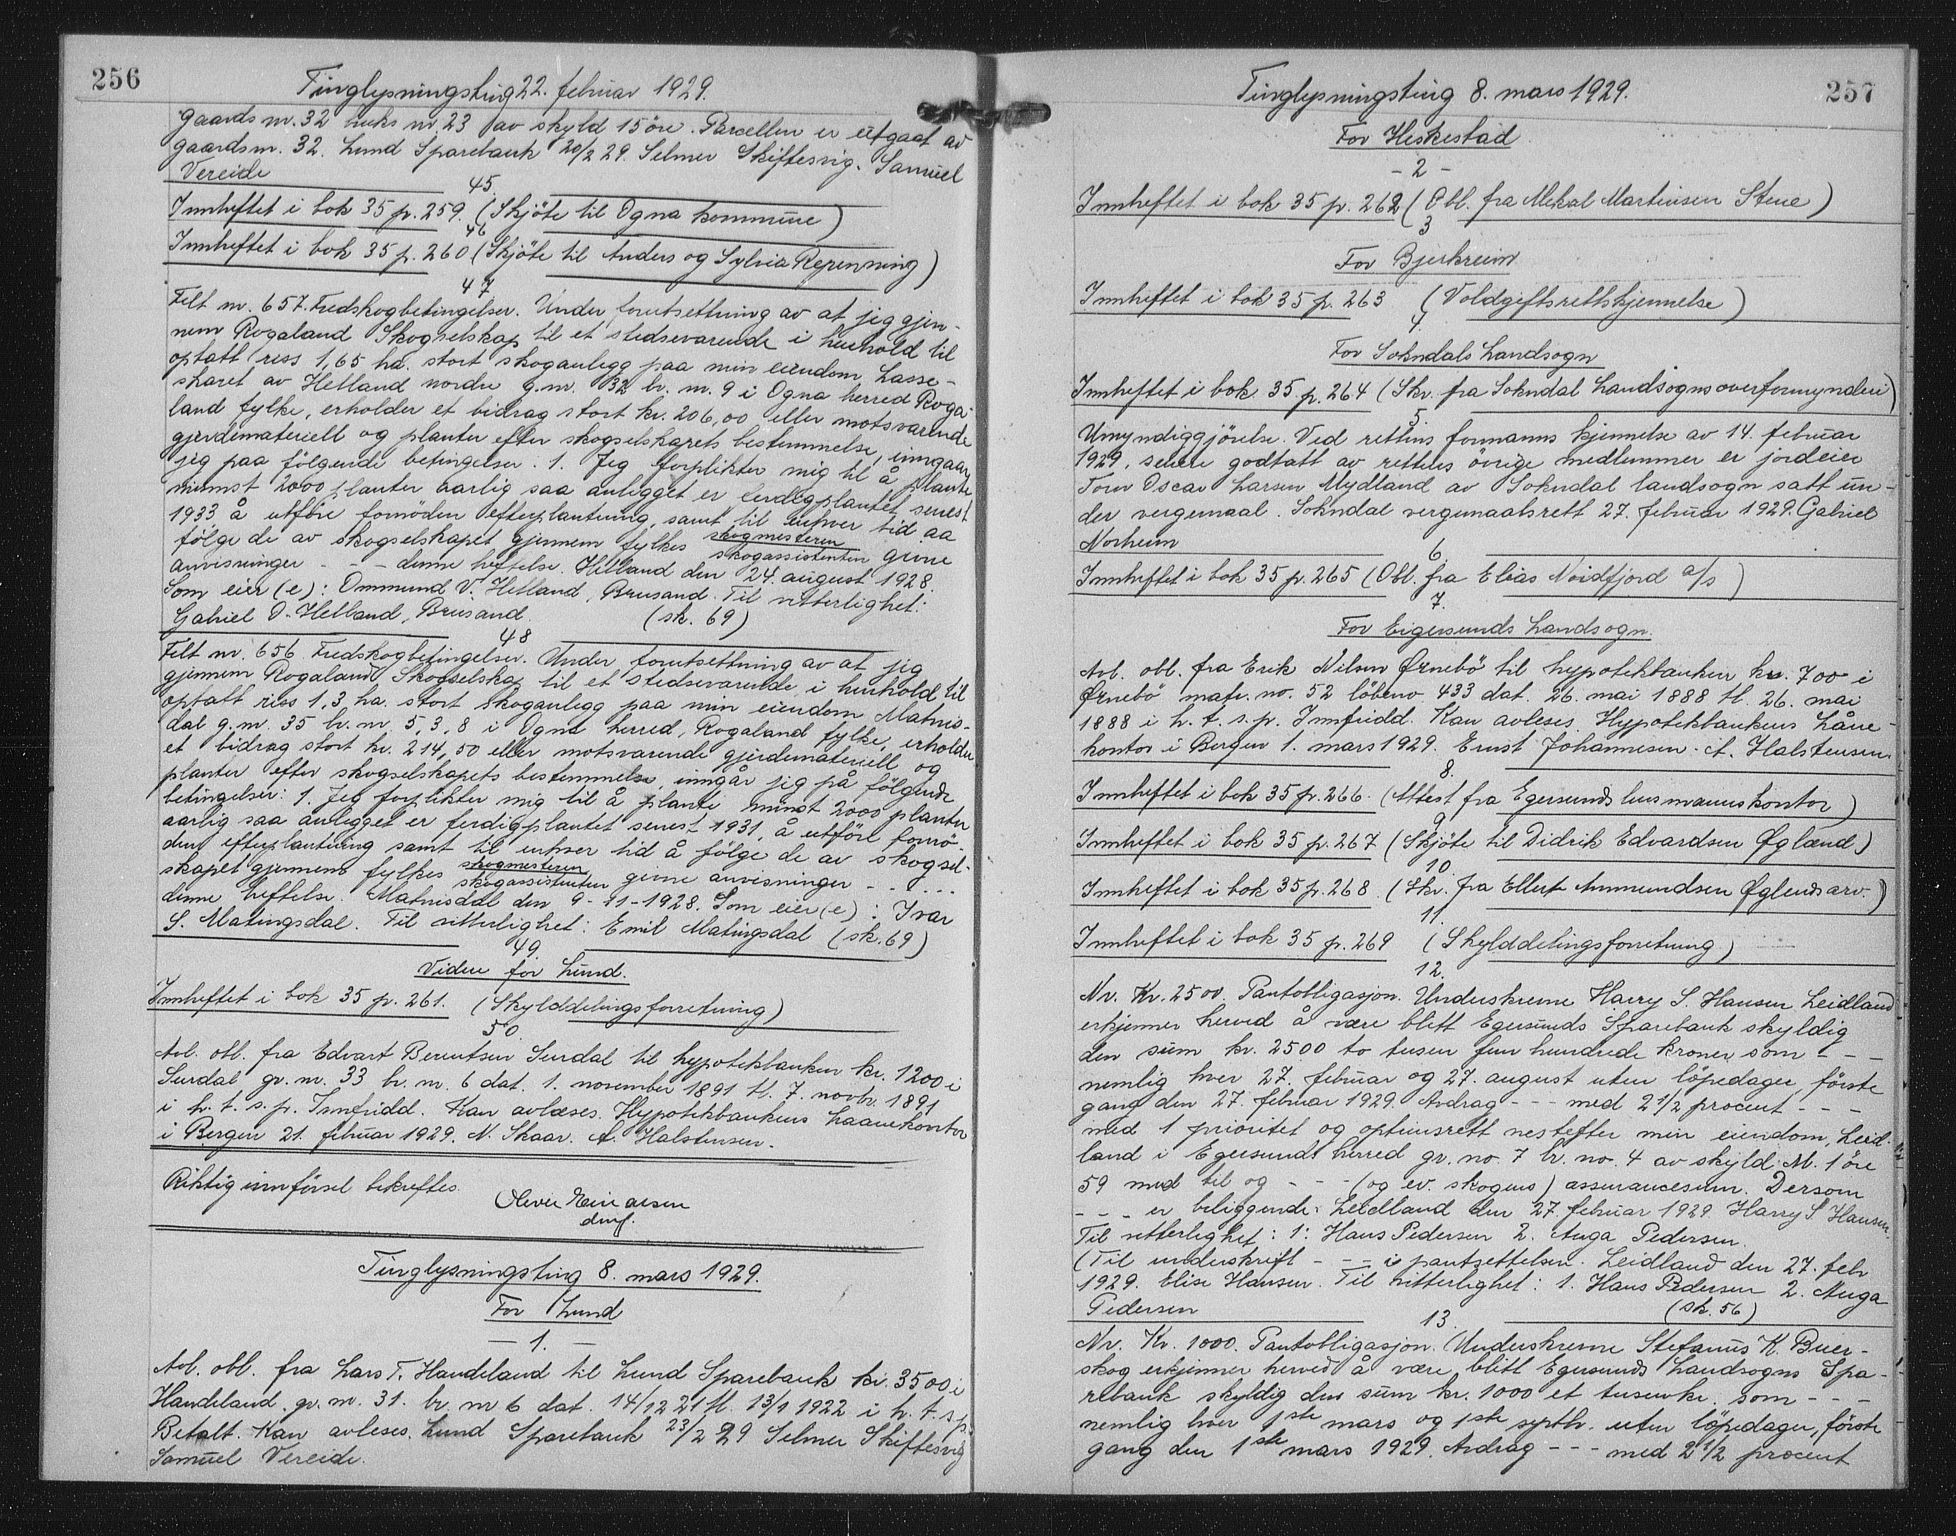 256
Tinglysningsting 22. februar 1929.
gaards nr. 32 bruks nr. 23 av skyld 15 öre. Parcellen er utgaat av
gaardsnr. 32. Lund Sparebank 20/2 29. Selmer Skiftesvig. Samuel
Vereide
45.
Innheftet i bok 35 p. 259. (Skjöte til Ogna kommune)
46
Innheftet i bok 35 p. 260 (Skjöte til Anders og Sylvia Repenning)
47
Felt nr. 657. Fredskogbetingelser. Under forutsettning av at jeg gjen-
nem Rogaland Skogselskap til et stedsevarende i henhold til
optatt riss 1,65 ha. stort skoganlegg paa min eiendom Lasse-
skaret av Hetland nordre g.nr. 32 br. nr. 9 i Ogna herred Roga-
land fylke, erholder et bidrag stort kr. 206,00 eller motsvarende
gjerdemateriell og planter efter skogselskapets bestemmelse, inngaar
jeg paa fölgende betingelser. 1. Jeg forplikter mig til å plante
minnst 2000 planter aarlig saa anlegget er ferdigplantet senest
1933 å utföre fornöden efterplantning, samt til enhver tid aa
fölge de av skogselskapet gjennem fylkes skogmesteren
skogassistenten givne
anvisninger - - - denne heftelse. Hetland den 24. august 1928.
Som eier (e): Ommund V. Hetland, Brusand. Til vitterlighet:
Gabriel O. Hetland, Brusand. (sk. 69)
48
Felt nr. 656. Fredskogbetingelser. Under forutsettning av at jeg
gjennem Rogaland Skogselskap til et stedsevarende, i henhold til
optatt riss 1,3 ha. stort skoganlegg paa min eiendom Matnis-
dal g.nr. 35 br. nr. 5, 3, 8 i Ogna herred, Rogaland fylke, erholder
et bidrag stort kr. 214,50 eller motsvarende gjerdemateriell og
planter efter skogselskapets bestemmelse, inngår jeg på fölgende
betingelser: 1. Jeg forplikter mig til å plante minst 2000 planter
aarlig saa anlegget er ferdigplantet senest 1931, å utföre fornö-
den efterplantning samt til enhver tid å fölge de av skogsel-
skapet gjennem fylkes skogmesteren
skogassistenten givne anvisninger - - - -
denne heftelse. Matnisdal den 9-11-1928. Som eier (e): Ivar
S. Matingsdal. Til vitterlighet: Emil Matingsdal (sk. 69)
49.
Videre for Lund.
Innheftet i bok 35 p. 261. (Skylddelingsforretning)
50.
Avl. obl. fra Edvart Berentsen Surdal til hypotekbanken kr. 1200 i
Surdal gr. nr. 33 br. nr. 6 dat. 1. november 1891 tl. 7. novbr. 1891
i h. t. s. p. Innfridd. Kan avlæses. Hypotekbankens Laanekontor
i Bergen 21. februar 1929. N. Skaar. A. Halstensen.
Riktig innförsel bekreftes.
dmf.
Tinglysningsting 8. mars 1929.
For Lund
- 1. -
Avl. obl. fra Lars T. Handeland til Lund Sparebank kr. 3500 i
Handeland. gr. nr. 31. br. nr 6 dat. 14/12 21 tl. 13/1 1922 i h. t. s. p.
Betalt. Kan avleses. Lund Sparebank 23/2 29 Selmer Skiftesvig
Samuel Vereide.
257
Tinglysningsting 8. mars 1929.
For Heskestad
- 2 -
Innheftet i bok 35 p. 262 (Obl. fra Mekal Martinsen Stene)
3
For Bjerkreim
Innheftet i bok 35 p. 263 (Voldgiftsrettskjennelse)
4
For Sokndals Landsogn
Innheftet i bok 35 p. 264 (Skr. fra Sokndal Landsogns overformynderi)
5.
Umyndiggjörelse. Ved rettens formanns kjennelse av 14. februar
1929, senere godtatt av rettens övrige medlemmer er jordeier
Tom Oscar Larsen Mydland av Sokndal landsogn satt un-
der vergemaal. Sokndal vergemaalsrett 27. februar 1929. Gabriel
Norheim
6.
Innheftet i bok 35 p. 265 (Obl. fra Elias Noidfjord a/s)
7.
For Eigersunds Landsogn.
Avl. obl. fra Erik Nilsen Ørnebö til hypotekbanken kr. 700 i
Ørnebö matr. no. 52 löbeno. 433 dat. 26. mai 1888 tl. 26. mai
1888 i h. t. s. p. Innfridd. Kan avleses. Hypotekbankens Låne-
kontor i Bergen 1. mars 1929. Ernst Johannesen. A. Halstensen.
8.
Innheftet i bok 35 p. 266. (Attest fra Egersunds lensmannskontor)
9.
Innheftet i bok 35 p. 267 (Skjöte til Didrik Edvardsen Øglænd)
10.
Innheftet i bok 35 p. 268. (Skr. fra Ellert Ammundsen Øglends arv.)
11.
Innheftet i bok 35 p. 269 (Skylddelingsforretning)
12.
Nr. Kr. 2500. Pantobligasjon. Underskrevne Harry S. Hansen Leidland
erkjenner herved å være blitt Egersunds Sparebank skyldig
den sum kr. 2500 to tusen fem hundrede kroner som - - -
nemlig hver 27. februar og 27. august uten löpedager, förste
gang den 27. februar 1929. Avdrag - - - med 2 1/2 procent - - -
med 1 prioritet og optinsrett nestefter min eiendom, Leid-
land i Egersund herred gr. no. 7 br. no. 4 av skyld M. 1 öre
59 med til og - - - (og ev. skogens) assurancesum. Dersom
- - - er beliggende. Leidland den 27. februar 1929. Harry S Hansen.
Til vitterlighet: 1. Hans Pedersen 2. Auga Pedersen.
(Til underskrift - - - i pantsettelsen. Leidland den 27. febr
1929. Elise Hansen. Til vitterlighet: 1. Hans Pedersen 2. Auga
Pedersen (sk. 56)
13.
Nr. Kr. 1000. Pantobligasjon. Underskrevne Stefanus K. Buer-
skog erkjenner herved å være blitt Egersunds Landsogns Spa-
rebank skyldig den sum kr. 1000 et tusen kr. som - - -
nemlig hver 1ste mars og 1ste septbr. uten löpedager, förste
gang den 1ste mars 1929. Avdrag - - - med 2 1/2 procent